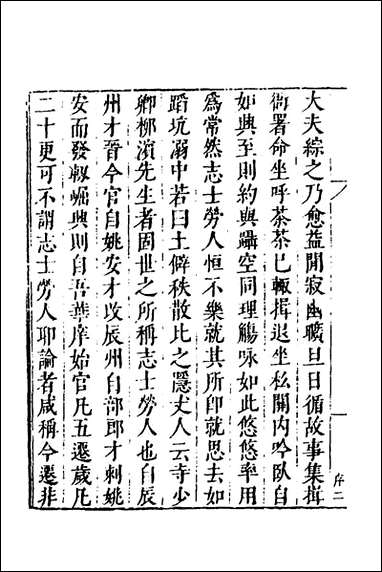 大夫綜之乃愈益閒寂幽曠旦日循故事集揖
衙署命坐呼茶茶已輒揖退坐私閣內吟臥自
如興至則約與躡空同理觴咏如此悠悠率用
爲常然志士勞人恒不樂就其所卽就思去如
蹈坑溺中若曰土僻秩散比之隱丈人云寺少
卿栁濱先生者固世之所稱志士勞人也自辰
州才晉今官自姚安才攺辰州自部郎才刺姚
安而發軔崛興則自吾葉庠始官凡五遷歲凡
二十更可不謂志士勞人耶論者咸稱今遷非
序二